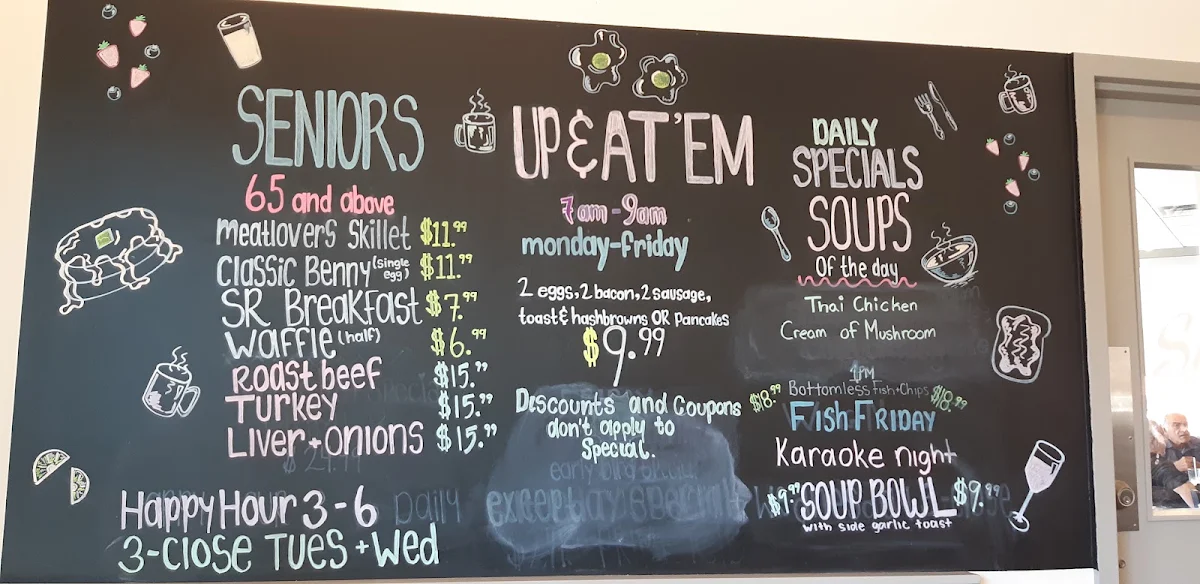 SENIORS
65 and above
Meatlovers Skillet $11.99
Classic Benny (single egg) $11.99
SR Breakfast $7.99
Waffle (half) $6.99
Roast beef $15.99
Turkey $15.99
Liver + Onions $15.99
Happy Hour 3-6 Daily
3-Close Tues + Wed
UP & AT 'EM
7am-9am
monday-friday
2 eggs, 2 bacon, 2 sausage,
toast & hashbrowns OR Pancakes
$9.99
Discounts and Coupons
don't apply to
Special.
early bird
DAILY
SPECIALS
SOUPS
Of the day
Thai Chicken
Cream of Mushroom
4PM
$18.99 Bottomless Fish + Chips $18.99
FISH FRIDAY
Karaoke night
$9.99 SOUP BOWL $9.99
with side garlic toast